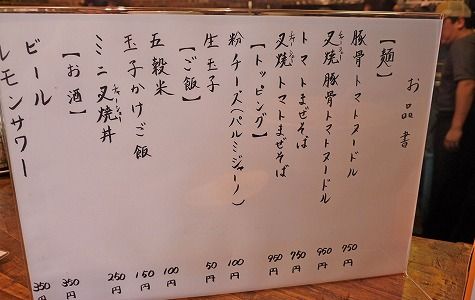 お品書
【麺】
豚骨トマトヌードル 750円
叉焼豚骨トマトヌードル 950円
トマトまぜそば 750円
叉焼トマトまぜそば 950円
【トッピング】
粉チーズ(パルミジャーノ) 100円
生玉子 50円
【ご飯】
五穀米 100円
玉子かけご飯 150円
ミニ叉焼丼 250円
【お酒】
ビール 350円
レモンサワー 350円